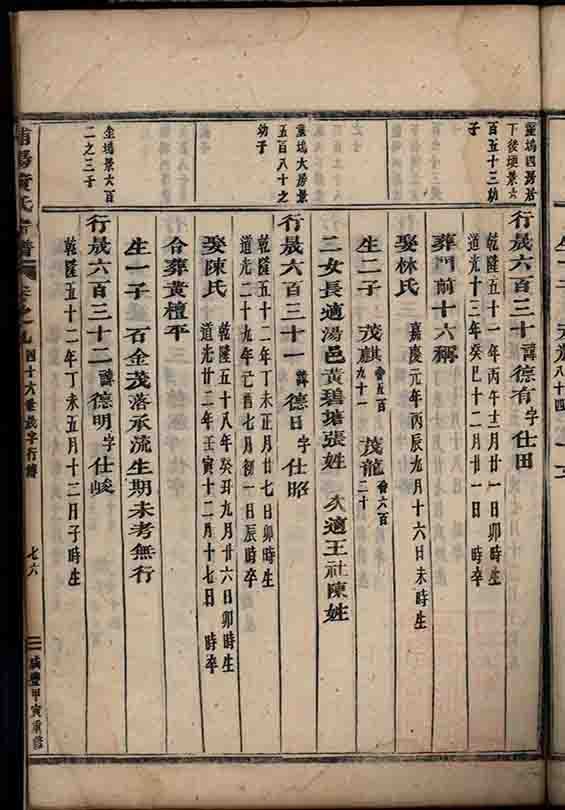 生二子 茂
八十四
靈塢四房居
下後塘景六
百五十三幼
子
行晟六百三十 諱德有字仕田
乾隆五十一年丙午十二月廿一日卯時生
道光十三年癸巳十二月廿一日 時卒
葬門前十六稱
娶林氏 嘉慶元年丙辰九月十六日未時生
生二子 茂麒 會五百九十一 茂龍 會六百二十
二女長適湯邑黃碧塘張姓 次適王社陳姓
靈塢大房景
五百八十之
幼子
行晟六百三十一 諱德日字仕昭
乾隆五十二年丁未正月廿七日卯時生
道光二十九年己酉七月初一日辰時卒
娶陳氏 乾隆五十八年癸丑九月廿六日卯時生
道光廿二年壬寅十二月十七日 時卒
合葬黃檀平
生一子 石金茂落承流生期未考無行
塢景六百
二之三子
行晟六百三十二 諱德明字仕峻
乾隆五十二年丁未五月十三日子時生
黃氏宗譜 卷之九 四十六 晟字行傳 七六 咸豐甲寅重修